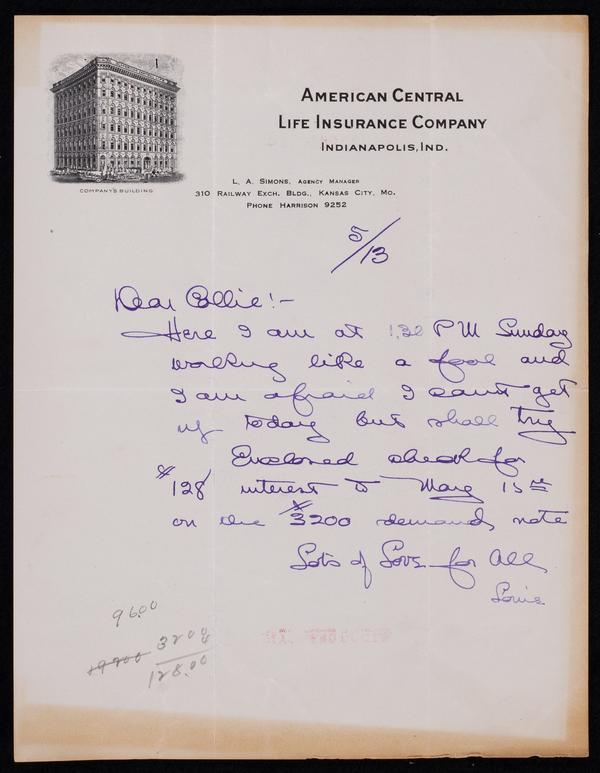 COMPANY'S BUILDING
AMERICAN CENTRAL
LIFE INSURANCE COMPANY
INDIANAPOLIS, IND.
L. A. SIMONS, AGENCY MANAGER
310 RAILWAY EXCH. BLDG., KANSAS CITY, MO.
PHONE HARRISON 9252
5/13
Dear Collie!-
Here I am at 1.30 PM Sunday
working like a fool and
I am afraid I cant get
up today but shall try
Enclosed check for
$128 interest to May 15th
on the $3200 demand note
Lots of Love for All
Louis
96.00
3200
128.00